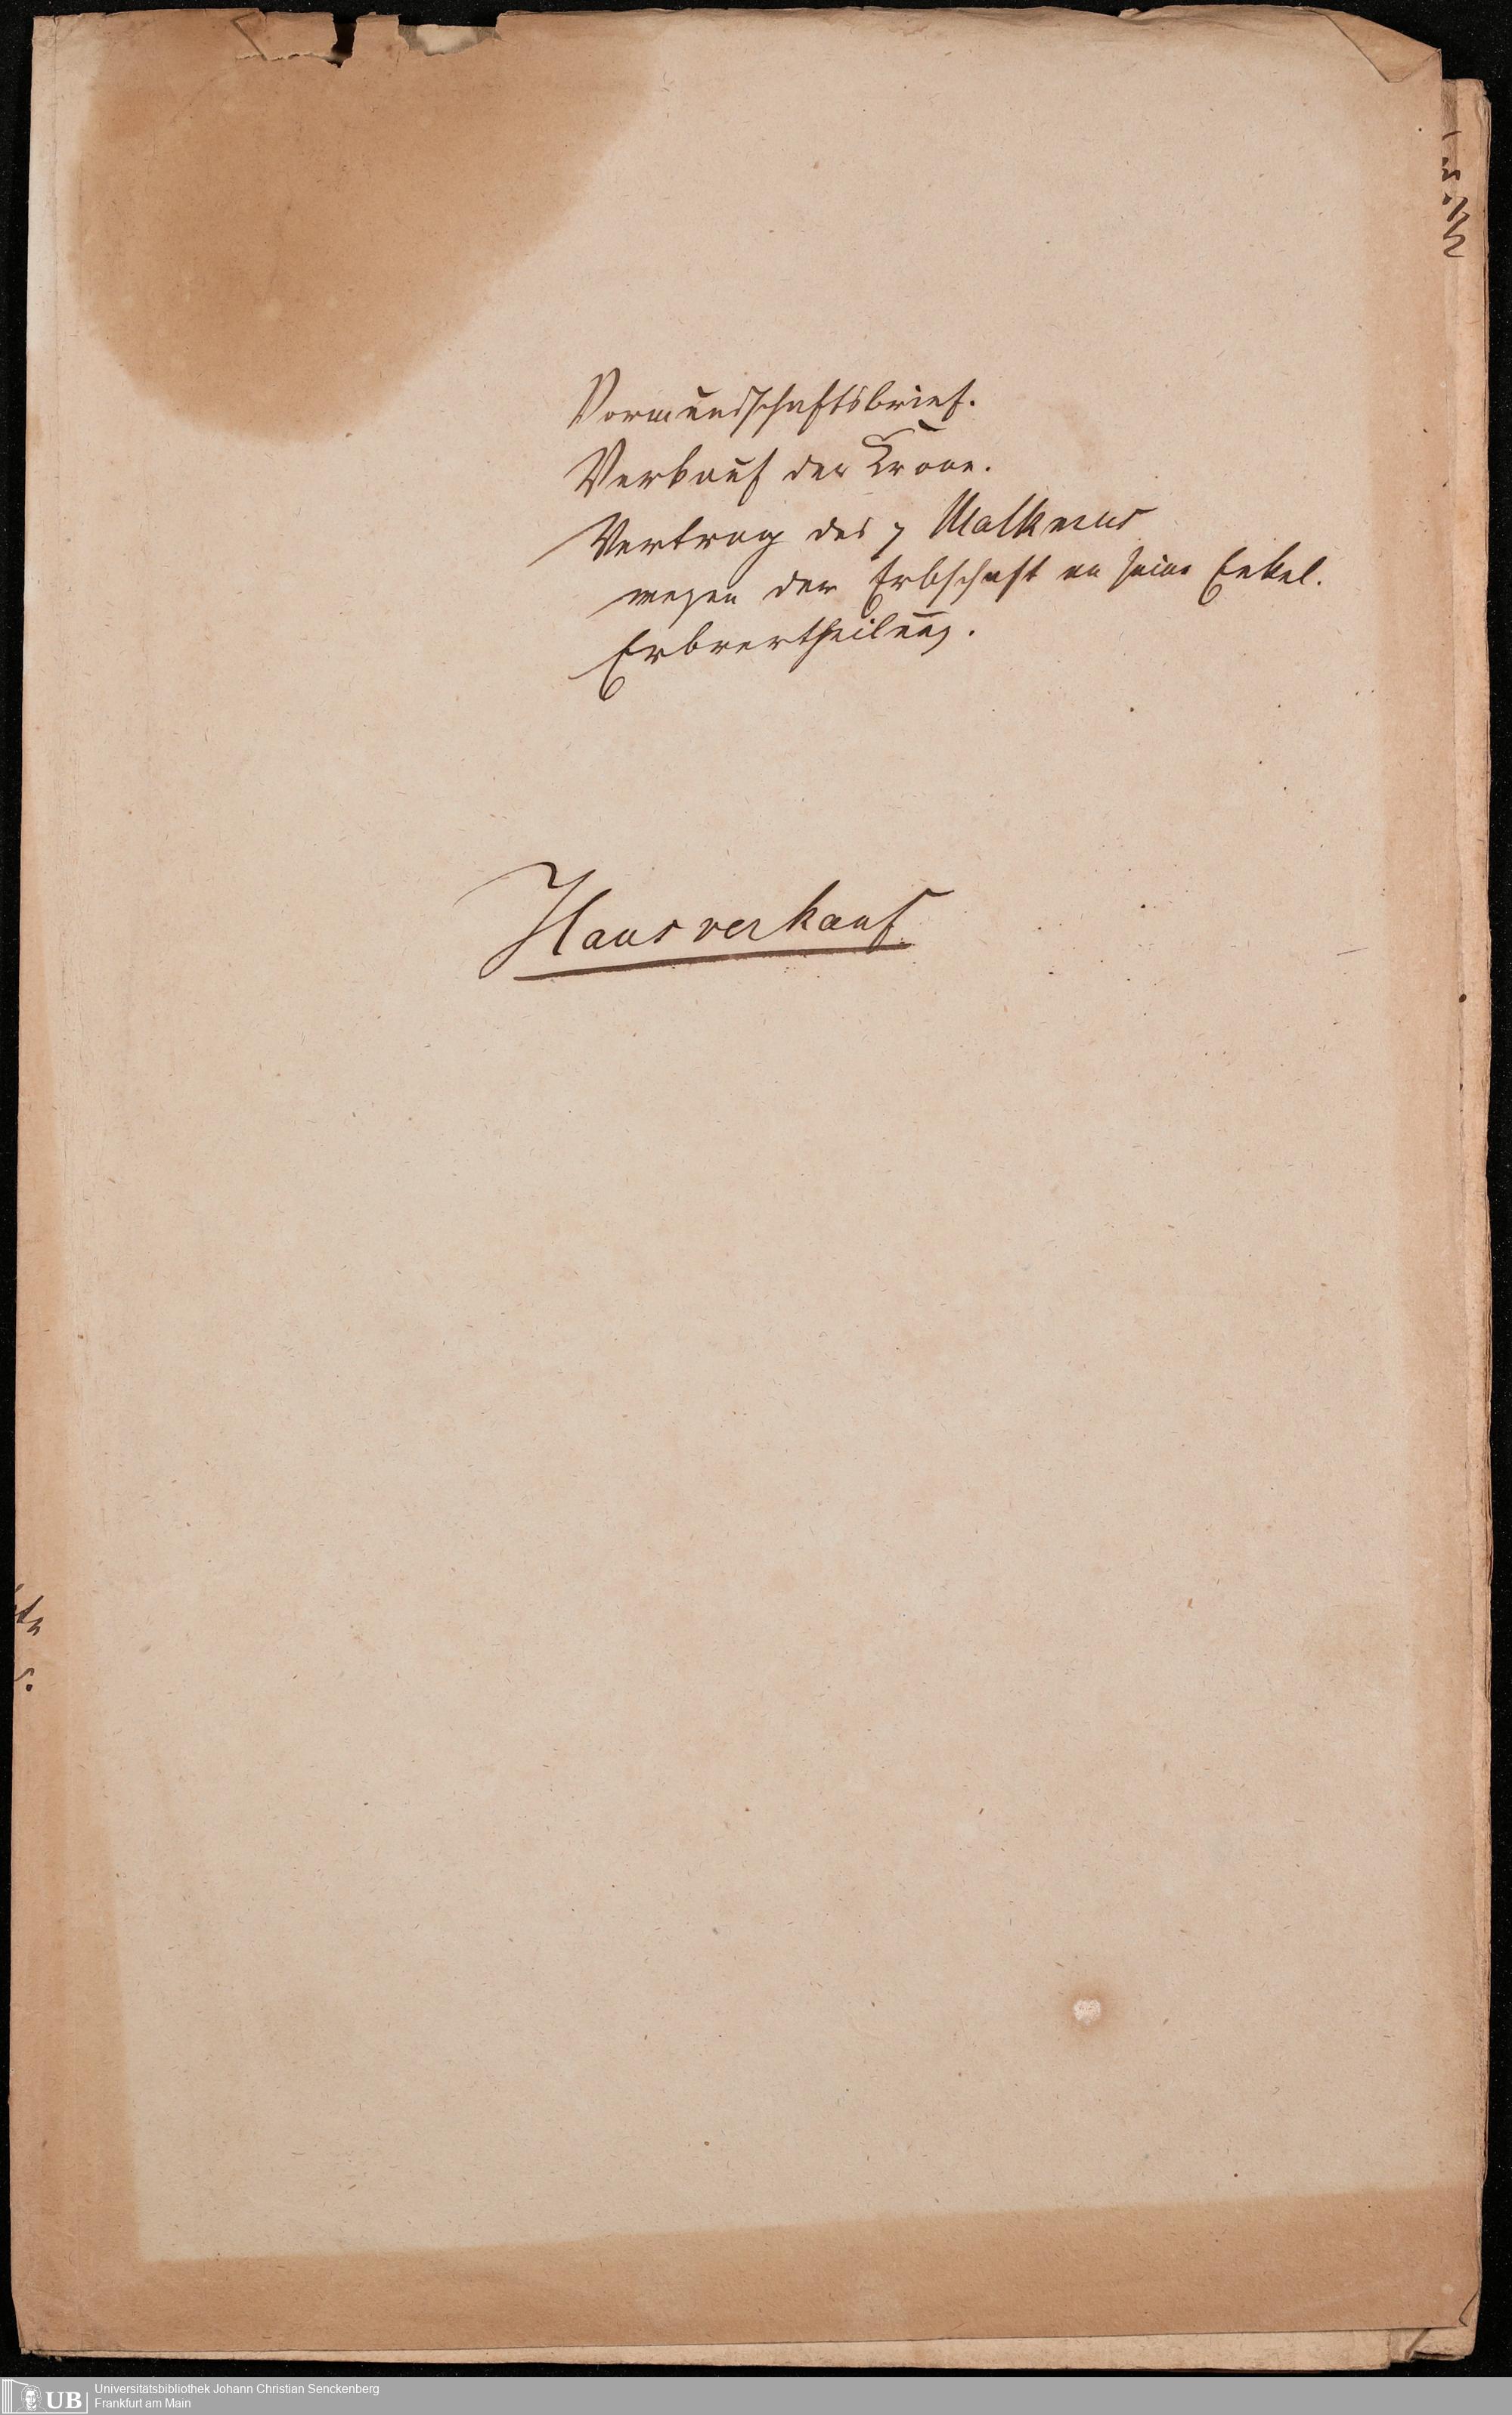 Vormundschaftsbrief.
Verkauf der Krone.
Vertrag des Malkmus
wegen der Erbschaft an seine Enkel.
Erbvertheilung.
Hausverkauf
UB
Universitätsbibliothek Johann Christian Senckenberg
Frankfurt am Main